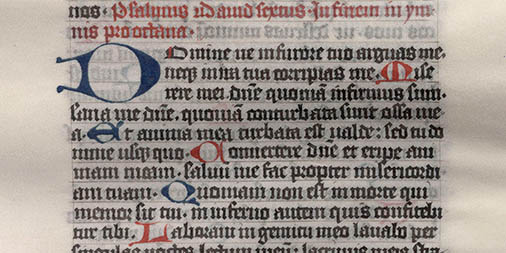 nos. Psalmus David sextus. In finem in ym
nis pro octava.
Domine ne in furore tuo arguas me.
neq; in ira tua corripias me. Mise
rere mei dñe quoniã infirmus sum.
sana me dñe. quoniã conturbata sunt ossa me
a. Et anima mea turbata est valde: sed tu do
mine usq; quo. Convertere dñe et eripe ani
mam meam. salvũ me fac propter misericordi
am tuam. Quoniam non est in morte qui
memor sit tui. in inferno autem quis confitebi
tur tibi. Laboravi in gemitu meo lavabo per
singulas noctes lectum meũ: lacrimis meis stra